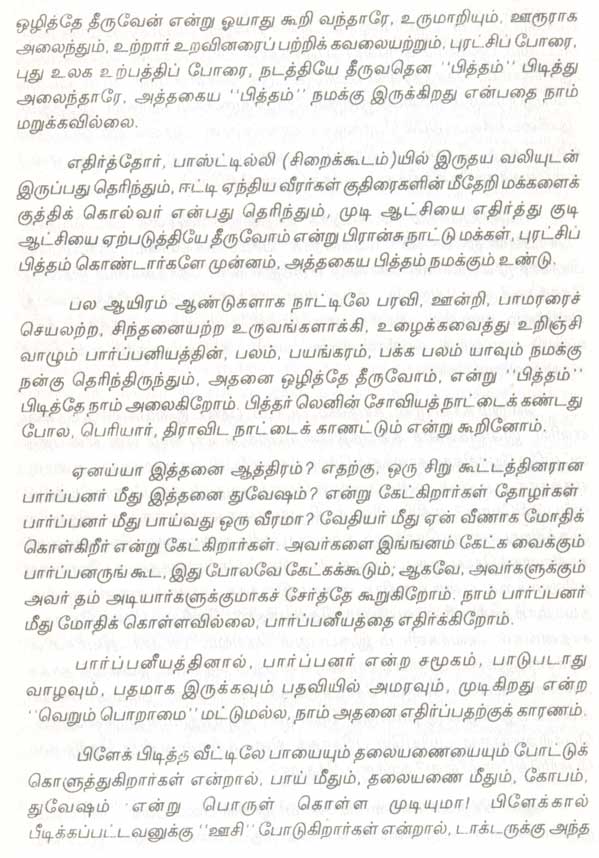 ஒழித்தே தீருவேன் என்று ஓயாது கூறி வந்தாரே, உருமாறியும், ஊரூராக
அலைந்தும், உற்றார் உறவினரைப் பற்றிக் கவலையற்றும், புரட்சிப் போரை,
புது உலக உற்பத்திப் போரை, நடத்தியே தீருவதென "பித்தம்" பிடித்து
அலைந்தாரே, அத்தகைய "பித்தம்" நமக்கு இருக்கிறது என்பதை நாம்
மறுக்கவில்லை.
எதிர்த்தோர், பாஸ்ட்டில்லி (சிறைக்கூடம்)யில் இருதய வலியுடன்
இருப்பது தெரிந்தும், ஈட்டி ஏந்திய வீரர்கள் குதிரைகளின் மீதேறி மக்களைக்
குத்திக் கொல்வர் என்பது தெரிந்தும், முடி ஆட்சியை எதிர்த்து குடி
ஆட்சியை ஏற்படுத்தியே தீருவோம் என்று பிரான்சு நாட்டு மக்கள், புரட்சிப்
பித்தம் கொண்டார்களே முன்னம், அத்தகைய பித்தம் நமக்கும் உண்டு.
பல ஆயிரம் ஆண்டுகளாக நாட்டிலே பரவி, ஊன்றி, பாமரரைச்
செயலற்ற, சிந்தனையற்ற உருவங்களாக்கி, உழைக்கவைத்து உறிஞ்சி
வாழும் பார்ப்பனியத்தின், பலம், பயங்கரம், பக்க பலம் யாவும் நமக்கு
நன்கு தெரிந்திருந்தும், அதனை ஒழித்தே தீருவோம், என்று "பித்தம்"
பிடித்தே நாம் அலைகிறோம். பித்தர் லெனின் சோவியத் நாட்டைக் கண்டது
போல, பெரியார், திராவிட நாட்டைக் காணட்டும் என்று கூறினோம்.
ஏனய்யா இத்தனை ஆத்திரம்? எதற்கு, ஒரு சிறு கூட்டத்தினரான
பார்ப்பனர் மீது இத்தனை துவேஷம்? என்று கேட்கிறார்கள் தோழர்கள்
பார்ப்பனர் மீது பாய்வது ஒரு வீரமா? வேதியர் மீது ஏன் வீணாக மோதிக்
கொள்கிறீர் என்று கேட்கிறார்கள். அவர்களை இங்ஙனம் கேட்க வைக்கும்
பார்ப்பனருங் கூட, இது போலவே கேட்கக்கூடும்; ஆகவே, அவர்களுக்கும்
அவர் தம் அடியார்களுக்குமார்கச் சேர்த்தே கூறுகிறோம். நாம் பார்ப்பனர்
மீது மோதிக் கொள்ளவில்லை, பார்ப்பனீயத்தை எதிர்க்கிறோம்.
பார்ப்பனீயத்தினால், பார்ப்பனர் என்ற சமூகம், பாடுபடாது
வாழவும், பதமாக இருக்கவும் பதவியில் அமரவும், முடிகிறது என்ற
"வெறும் பொறாமை" மட்டுமல்ல, நாம் அதனை எதிர்ப்பதற்குக் காரணம்.
பிளேக் பிடித்த வீட்டிலே பாயையும் தலையணையையும் போட்டுக்
கொளுத்துகிறார்கள் என்றால், பாய் மீதும், தலையணை மீதும், கோபம்,
துவேஷம் என்று பொருள் கொள்ள முடியுமா! பிளேக்கால்
பீடிக்கப்பட்டவனுக்கு "ஊசி" போடுகிறார்கள் என்றால், டாக்டருக்கு அந்த